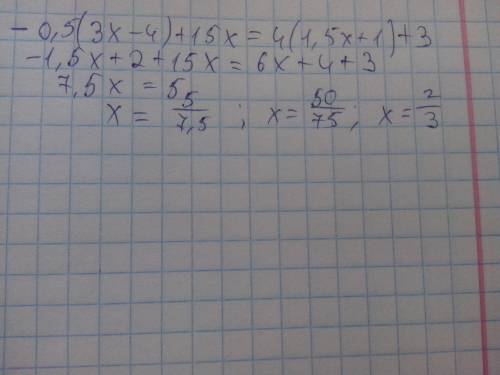 - 0,5(3x-4)+15x = 4(1,5x+1)+3
-1,5x+2+15x = 6x+4+3
7,5x = 5
x = 5/7,5 ; x = 50/75 ; x = 2/3